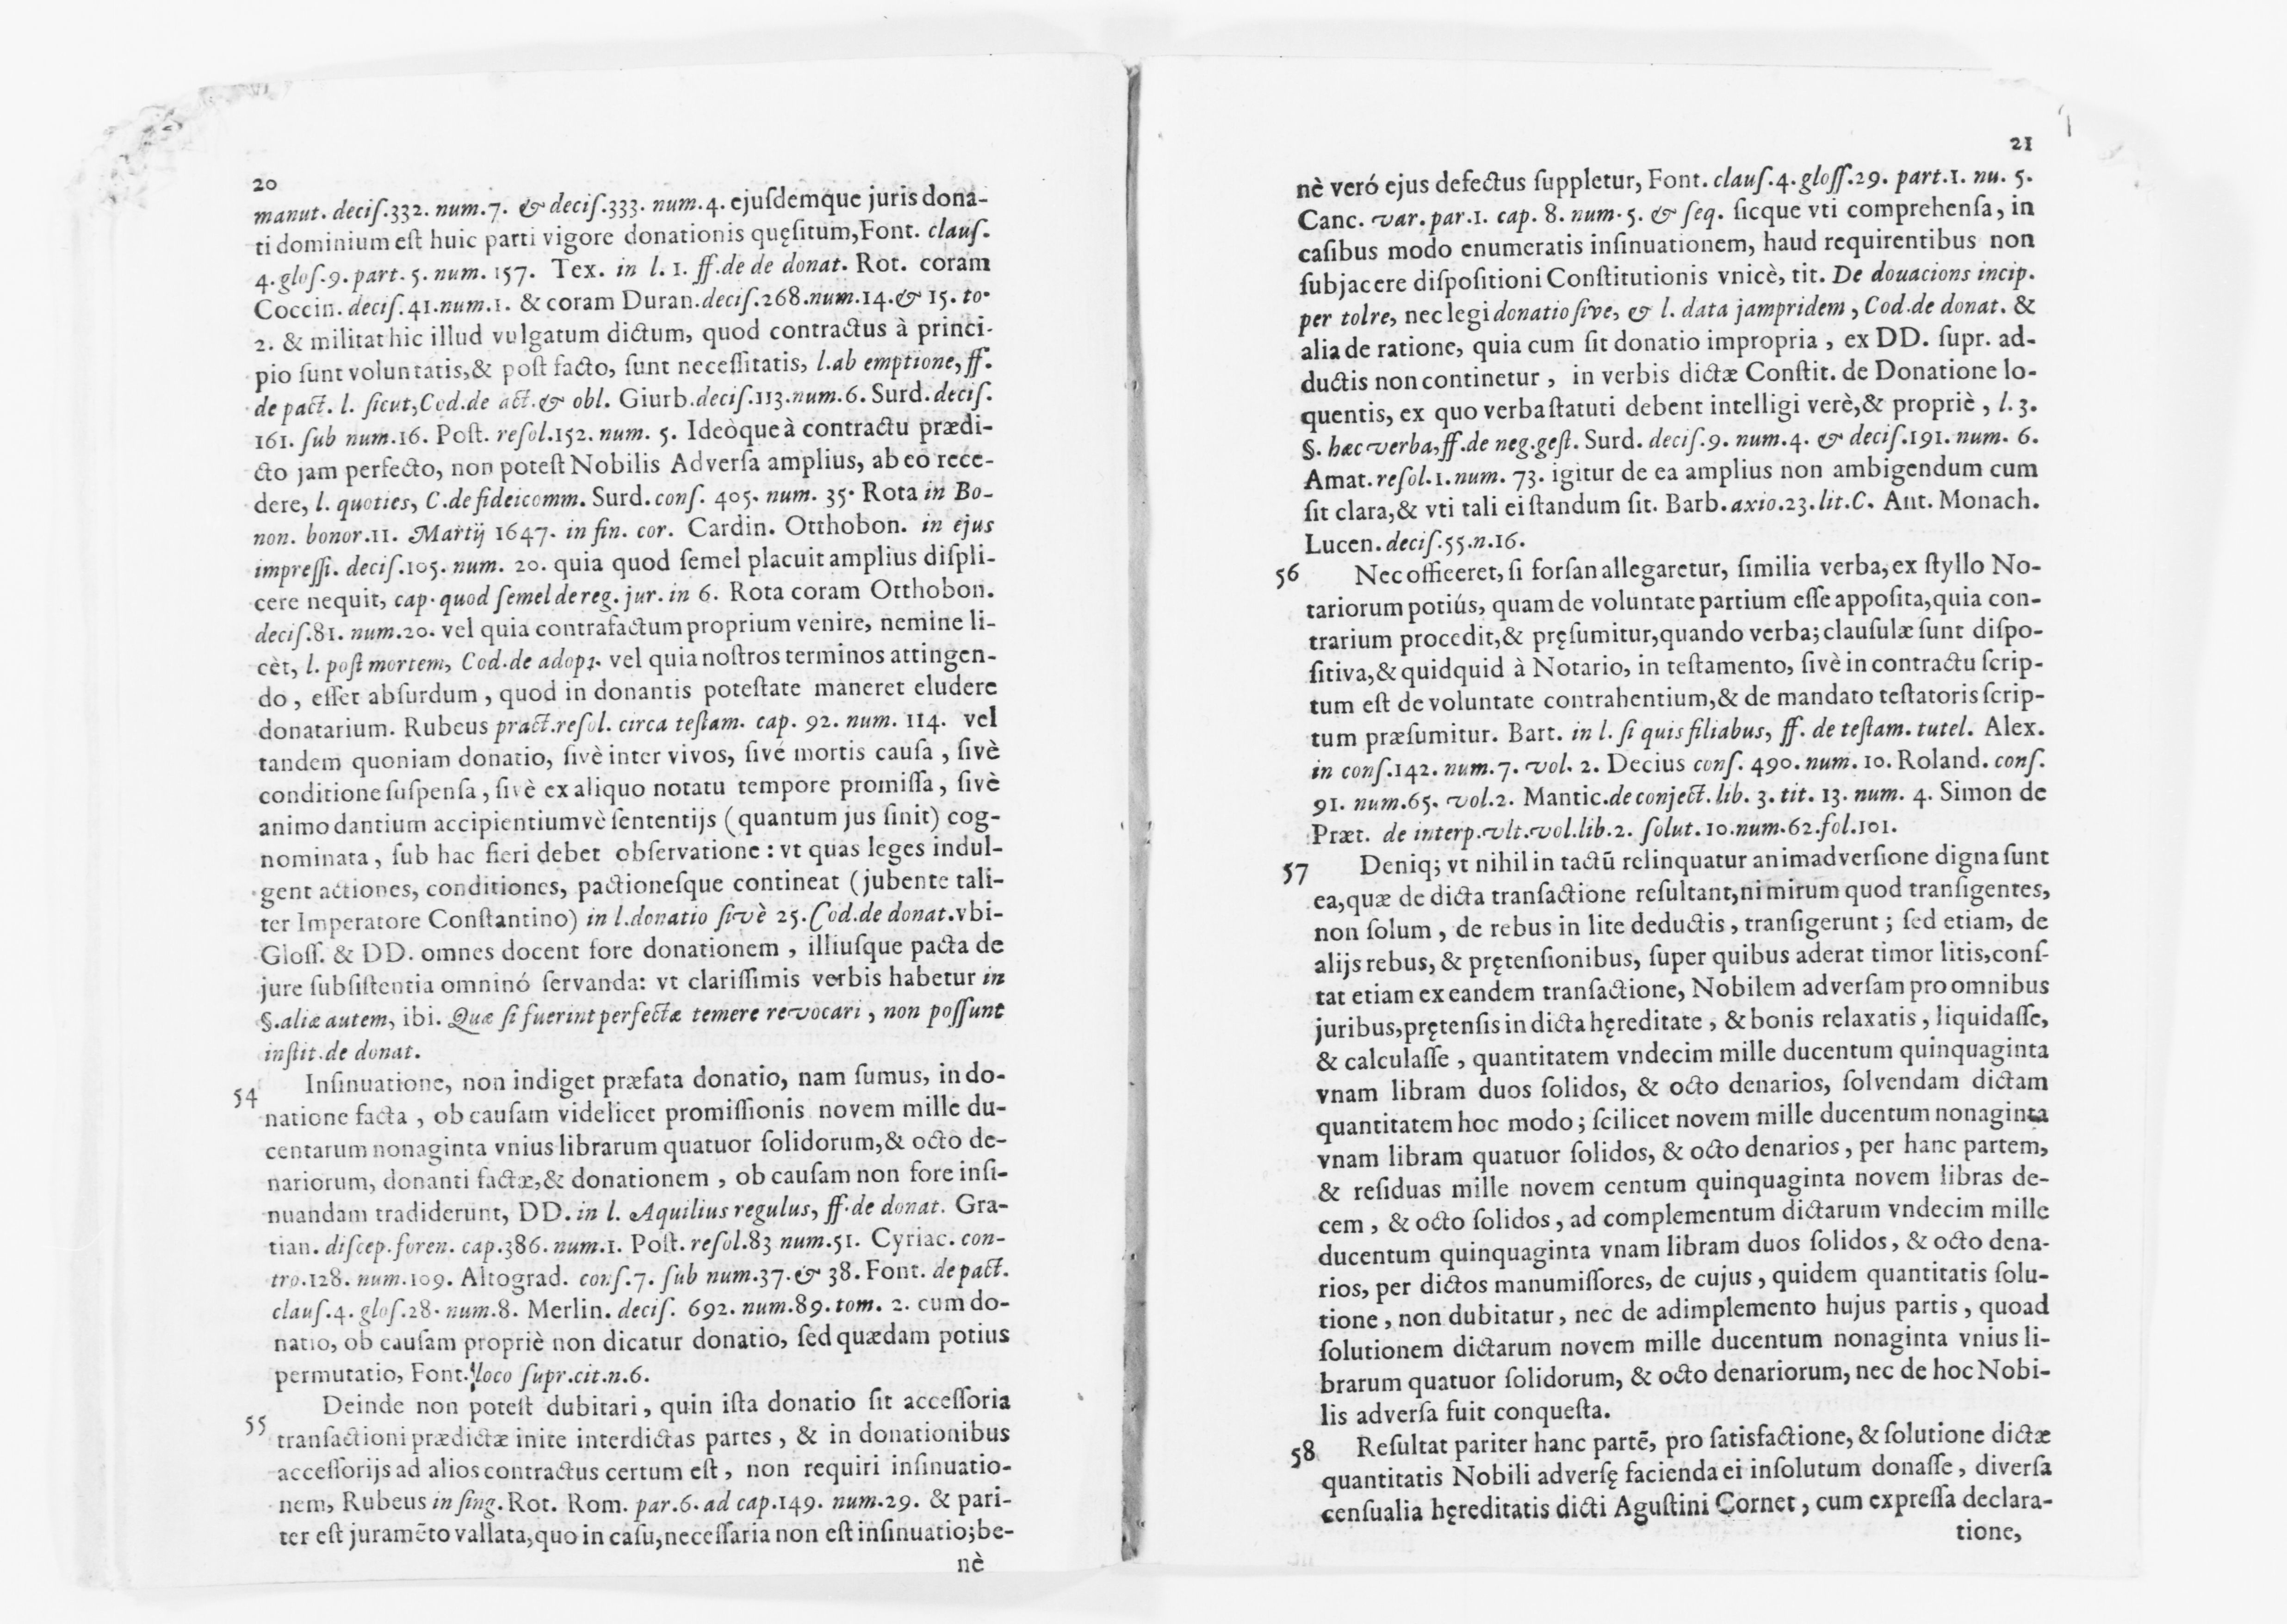 20
manut. decis.332. num.7. & decis.333. num.4. ejusdemque juris dona-
ti dominium est huic parti vigore donationis quęsitum,Font. claus.
4.glos.9.part. 5. num. 157. Tex. in l. 1. ff.de de donat. Rot. coram
Coccin. decis.41.num.1. & coram Duran.decis.268.num.14.& 15. to.
2. & militat hic illud vulgatum dictum, quod contractus à princi-
pio sunt voluntatis,& post facto, sunt necessitatis, l.ab emptione, ff.
de pact. l. sicut,Cod.de act.& obl. Giurb.decis.113.num.6. Surd.decis.
161. sub num.16. Post. resol.152. num. 5. Ideòque à contractu prædi-
cto jam perfecto, non potest Nobilis Adversa amplius, ab eo rece-
dere, l. quoties, C.de fideicomm. Surd.cons. 405. num. 35. Rota in Bo-
non. bonor.11. Martij 1647. in fin. cor. Cardin. Otthobon. in ejus
impressi. decis.105. num. 20. quia quod semel placuit amplius displi-
cere nequit, cap. quod semel de reg. jur. in 6. Rota coram Otthobon.
decis.81. num.20. vel quia contrafactum proprium venire, nemine li-
cèt, l. post mortem, Cod.de adopt. vel quia nostros terminos attingen-
do, esset absurdum, quod in donantis potestate maneret eludere
donatarium. Rubeus pract.resol. circa testam. cap. 92. num. 114. vel
tandem quoniam donatio, sivè inter vivos, sivé mortis causa, sivè
conditione suspensa, sivè ex aliquo notatu tempore promissa, sivè
animo dantium accipientiumvè sententijs (quantum jus sinit) cog-
nominata, sub hac fieri debet observatione: vt quas leges indul-
gent actiones, conditiones, pactionesque contineat (jubente tali-
ter Imperatore Constantino) in l.donatio sivè 25.Cod.de donat.vbi-
Gloss. & DD. omnes docent fore donationem, illiusque pacta de
jure subsistentia omninó servanda: vt clarissimis verbis habetur in
§.aliæ autem, ibi. Quæ si fuerint perfectæ temere revocari, non possunt
instit.de donat.
54 Insinuatione, non indiget præfata donatio, nam sumus, in do-
natione facta, ob causam videlicet promissionis novem mille du-
centarum nonaginta vnius librarum quatuor solidorum,& octo de-
nariorum, donanti factæ,& donationem, ob causam non fore insi-
nuandam tradiderunt, DD. in l. Aquilius regulus, ff.de donat. Gra-
tian. discep.foren. cap.386. num.1. Post. resol.83 num.51. Cyriac. con-
tro.128. num.109. Altograd. cons.7. sub num.37.& 38. Font. de pact.
claus.4. glos.28. num.8. Merlin. decis. 692. num.89. tom. 2. cum do-
natio, ob causam propriè non dicatur donatio, sed quædam potius
permutatio, Font. loco supr.cit.n.6.
55 Deinde non potest dubitari, quin ista donatio sit accessoria
transactioni prædictæ inite interdictas partes, & in donationibus
accessorijs ad alios contractus certum est, non requiri insinuatio-
nem, Rubeus in sing. Rot. Rom. par.6. ad cap.149. num.29. & pari-
ter est juramẽto vallata,quo in casu,necessaria non est insinuatio;be-
nè
21
nè veró ejus defectus suppletur, Font. claus.4. gloss.29. part.1. nu. 5.
Canc. var. par.1. cap. 8. num. 5. & seq. sicque vti comprehensa, in
casibus modo enumeratis insinuationem, haud requirentibus non
subjacere dispositioni Constitutionis vnicè, tit. De douacions incip.
per tolre, nec legi donatio sive, & l. data jampridem, Cod.de donat. &
alia de ratione, quia cum sit donatio impropria, ex DD. supr. ad-
ductis non continetur, in verbis dictæ Constit. de Donatione lo-
quentis, ex quo verba statuti debent intelligi verè,& propriè, l. 3.
§. hæc verba, ff.de neg.gest. Surd. decis.9. num.4. & decis.191. num. 6.
Amat. resol.1.num. 73. igitur de ea amplius non ambigendum cum
sit clara,& vti tali ei standum sit. Barb.axio.23.lit.C. Ant. Monach.
Lucen. decis.55.n.16.
56 Nec officeret, si forsan allegaretur, similia verba, ex styllo No-
tariorum potiús, quam de voluntate partium esse apposita,quia con-
trarium procedit,& pręsumitur,quando verba; clausulæ sunt dispo-
sitiva,& quidquid à Notario, in testamento, sivè in contractu scrip-
tum est de voluntate contrahentium,& de mandato testatoris scrip-
tum præsumitur. Bart. in l. si quis filiabus, ff. de testam. tutel. Alex.
in cons.142. num.7. vol. 2. Decius cons. 490. num. 10. Roland. cons.
91. num.65. vol.2. Mantic.de conject. lib. 3. tit. 13. num. 4. Simon de
Præt. de interp.vlt.vol.lib.2. solut.10.num.62.fol.101.
57 Deniq; vt nihil in tactũ relinquatur animadversione digna sunt
ea,quæ de dicta transactione resultant,nimirum quod transigentes,
non solum, de rebus in lite deductis, transigerunt; sed etiam, de
alijs rebus, & prętensionibus, super quibus aderat timor litis,cons-
tat etiam ex eandem transactione, Nobilem adversam pro omnibus
juribus,prętensis in dicta hęreditate, & bonis relaxatis, liquidasse,
& calculasse, quantitatem vndecim mille ducentum quinquaginta
vnam libram duos solidos, & octo denarios, solvendam dictam
quantitatem hoc modo; scilicet novem mille ducentum nonaginta
vnam libram quatuor solidos, & octo denarios, per hanc partem,
& residuas mille novem centum quinquaginta novem libras de-
cem, & octo solidos, ad complementum dictarum vndecim mille
ducentum quinquaginta vnam libram duos solidos, & octo dena-
rios, per dictos manumissores, de cujus, quidem quantitatis solu-
tione, non dubitatur, nec de adimplemento hujus partis, quoad
solutionem dictarum novem mille ducentum nonaginta vnius li-
brarum quatuor solidorum, & octo denariorum, nec de hoc Nobi-
lis adversa fuit conquesta.
58 Resultat pariter hanc partẽ, pro satisfactione, & solutione dictæ
quantitatis Nobili adversę facienda ei insolutum donasse, diversa
censualia hęreditatis dicti Agustini Cornet, cum expressa declara-
tione,